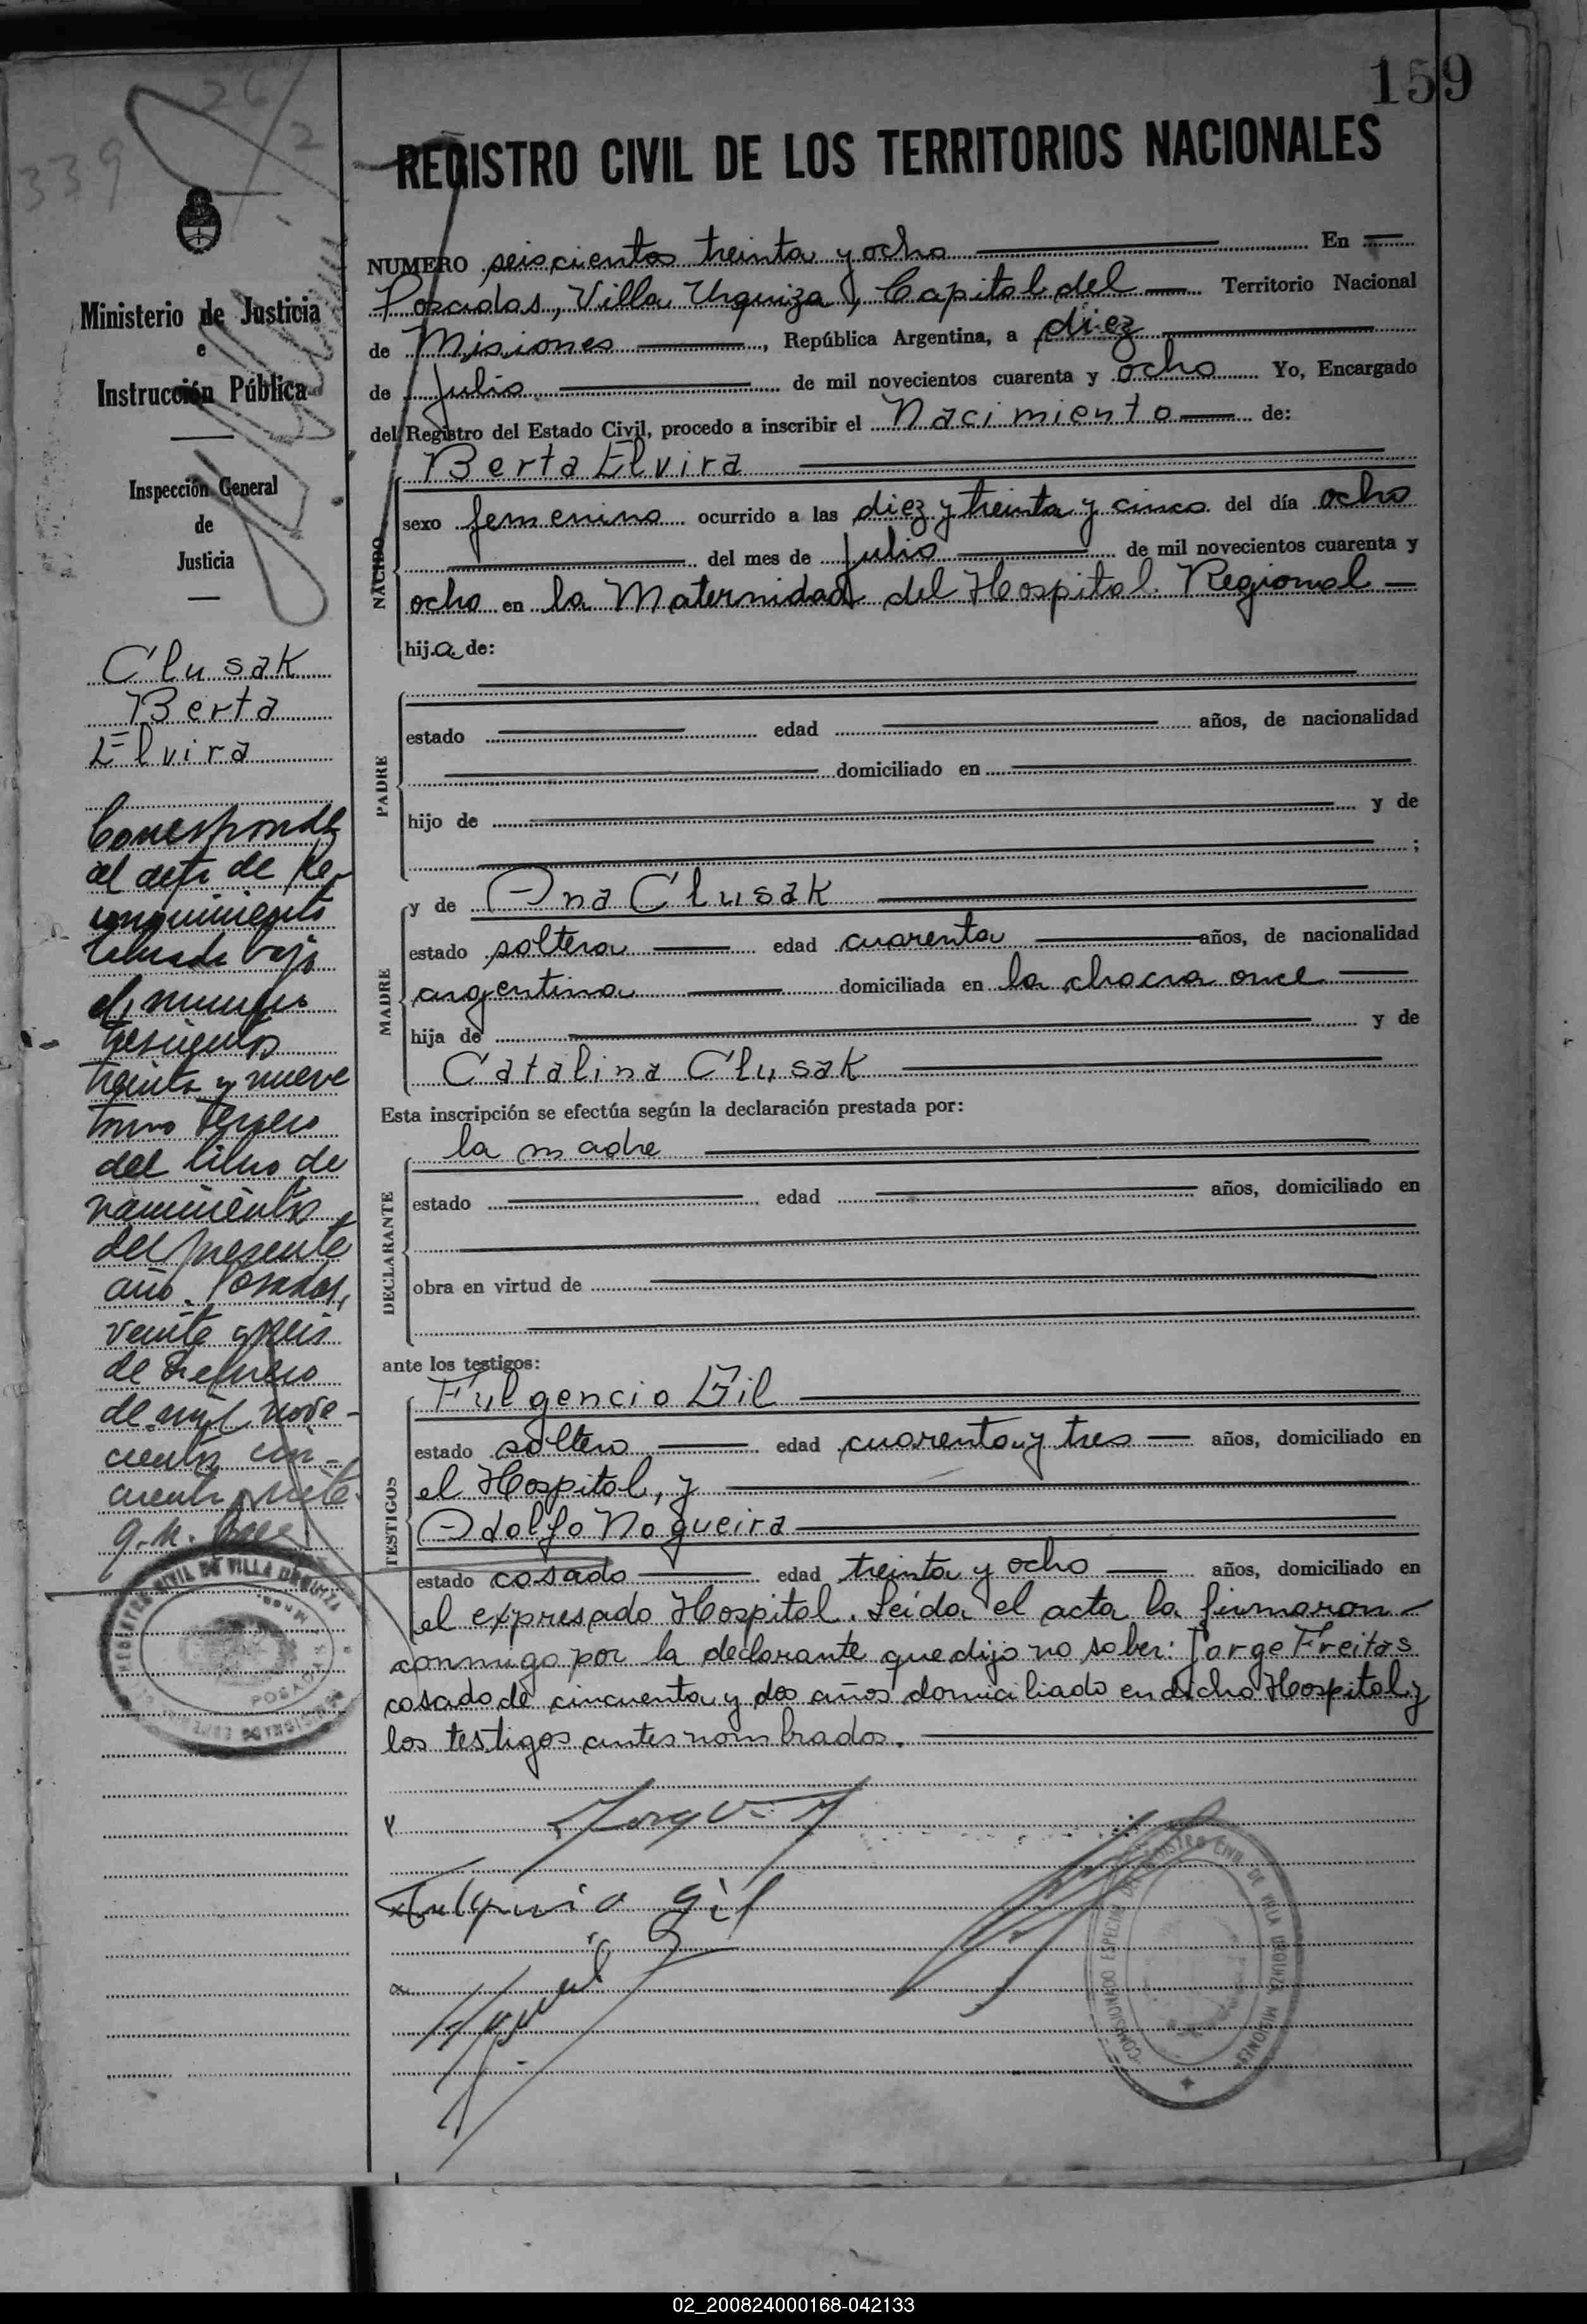 159
26/2
339
REGISTRO CIVIL DE LOS TERRITORIOS NACIONALES
Ministerio de Justicia
e
Instrucción Pública
Inspección General
de
Justicia
Clusak
Berta
Elvira
Corresponde
al acta de Re-
conocimiento
labrada bajo
el numero
trescientos
treinta y nueve
tomo tercero
del libro de
nacimientos
del presente
año. Posadas,
veinte y seis
de Febrero
de mil nove-
cientos cin-
cuenta y siete.
NUMERO seiscientos treinta y ocho En
Posadas, Villa Urquiza, Capital del Territorio Nacional
de Misiones, República Argentina, a diez
de Julio de mil novecientos cuarenta y ocho Yo, Encargado
del Registro del Estado Civil, procedo a inscribir el Nacimiento de:
Berta Elvira
NACIDO
sexo femenino ocurrido a las diez y treinta y cinco del día ocho
del mes de Julio de mil novecientos cuarenta y
ocho en la Maternidad del Hospital Regional
hija de:
PADRE
estado edad años, de nacionalidad
domiciliado en
hijo de y de
;
MADRE
y de Ana Clusak
estado soltera edad cuarenta años, de nacionalidad
argentina domiciliada en la chacra once
hija de y de
Catalina Clusak
Esta inscripción se efectúa según la declaración prestada por:
la madre
DECLARANTE
estado edad años, domiciliado en
obra en virtud de
ante los testigos:
TESTIGOS
Fulgencio Gil
estado soltero edad cuarenta y tres años, domiciliado en
el Hospital, y
Adolfo Nogueira
estado casado edad treinta y ocho años, domiciliado en
el expresado Hospital. Leida el acta la firmaron
conmigo por la declarante que dijo no saber: Jorge Freitas
casado de cincuenta y dos años domiciliado en dicho Hospital y
los testigos antes nombrados.
Fulgencio Gil
REGISTRO CIVIL DE VILLA URQUIZA
POSADAS
COMISIONADO ESPECIAL DEL REGISTRO CIVIL DE VILLA URQUIZA MISIONES
02_200824000168-042133